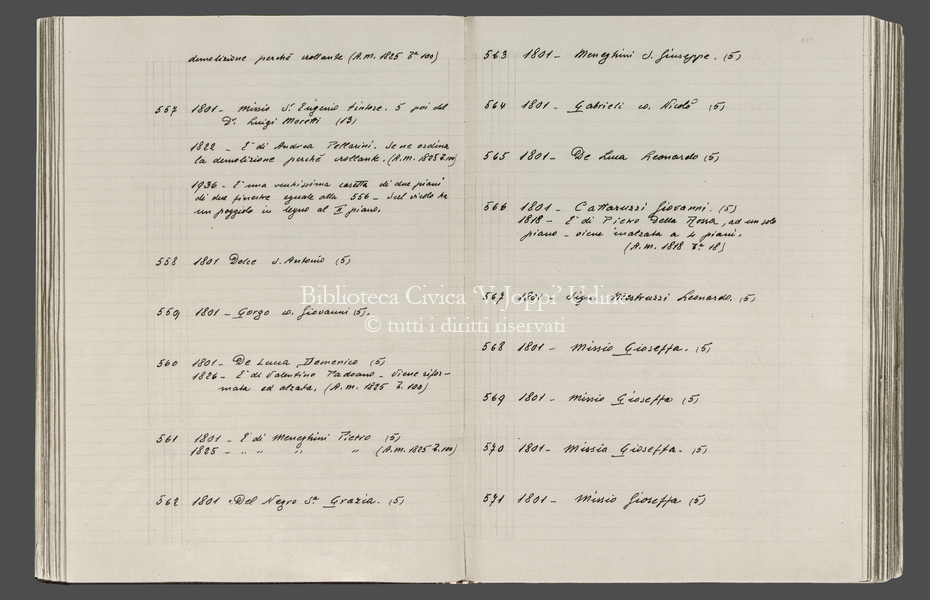 demolizione perchè crollante (A.M. 1825 Ta 100)
557 1801 - Missio Sr Eugenio tintore. 5 poi del
Dr Luigi Moretti (13)
1822 - È di Andrea Pellarini. Se ne ordina
la demolizione perchè crollante. (A.M. 1825 T. 100)
1936 - È una vecchissima casetta di due piani
di due finestre eguale alla 556 - Sul vicolo ha
un poggiolo in legno al II piano.
558 1801 Dolce S. Antonio (5)
559 1801 - Gorgo co. Giovanni (5).
560 1801 - De Luca Domenico (5)
1826 - È di Valentino Padoano - viene rifor-
mata ed alzata. (A.M. 1825 T. 100)
561 1801 - È di Meneghini Pietro (5)
1825 - " " " " (A.M. 1825 T. 100)
562 1801 - Del Negro Sa Grazia. (5)
563 1801 - Meneghini S. Giuseppe. (5)
564 1801 - Gabrieli co. Nicolò (5)
565 1801 - De Luca Leonardo (5)
566 1801 - Cattaruzzi Giovanni. (5)
1818 - È di Pietro Della Rossa, ad un solo
piano - viene inalzata a 4 piani.
(A.M. 1818 Ta 18)
567 1801 - Sigr. Leonardo. (5)
568 1801 - Missio Gioseffa. (5)
569 1801 - Missio Gioseffa (5)
570 1801 - Missio Gioseffa. (5)
571 1801 - Missio Gioseffa (5)
Biblioteca Civica 'V. Joppi' Udine
© tutti i diritti riservati